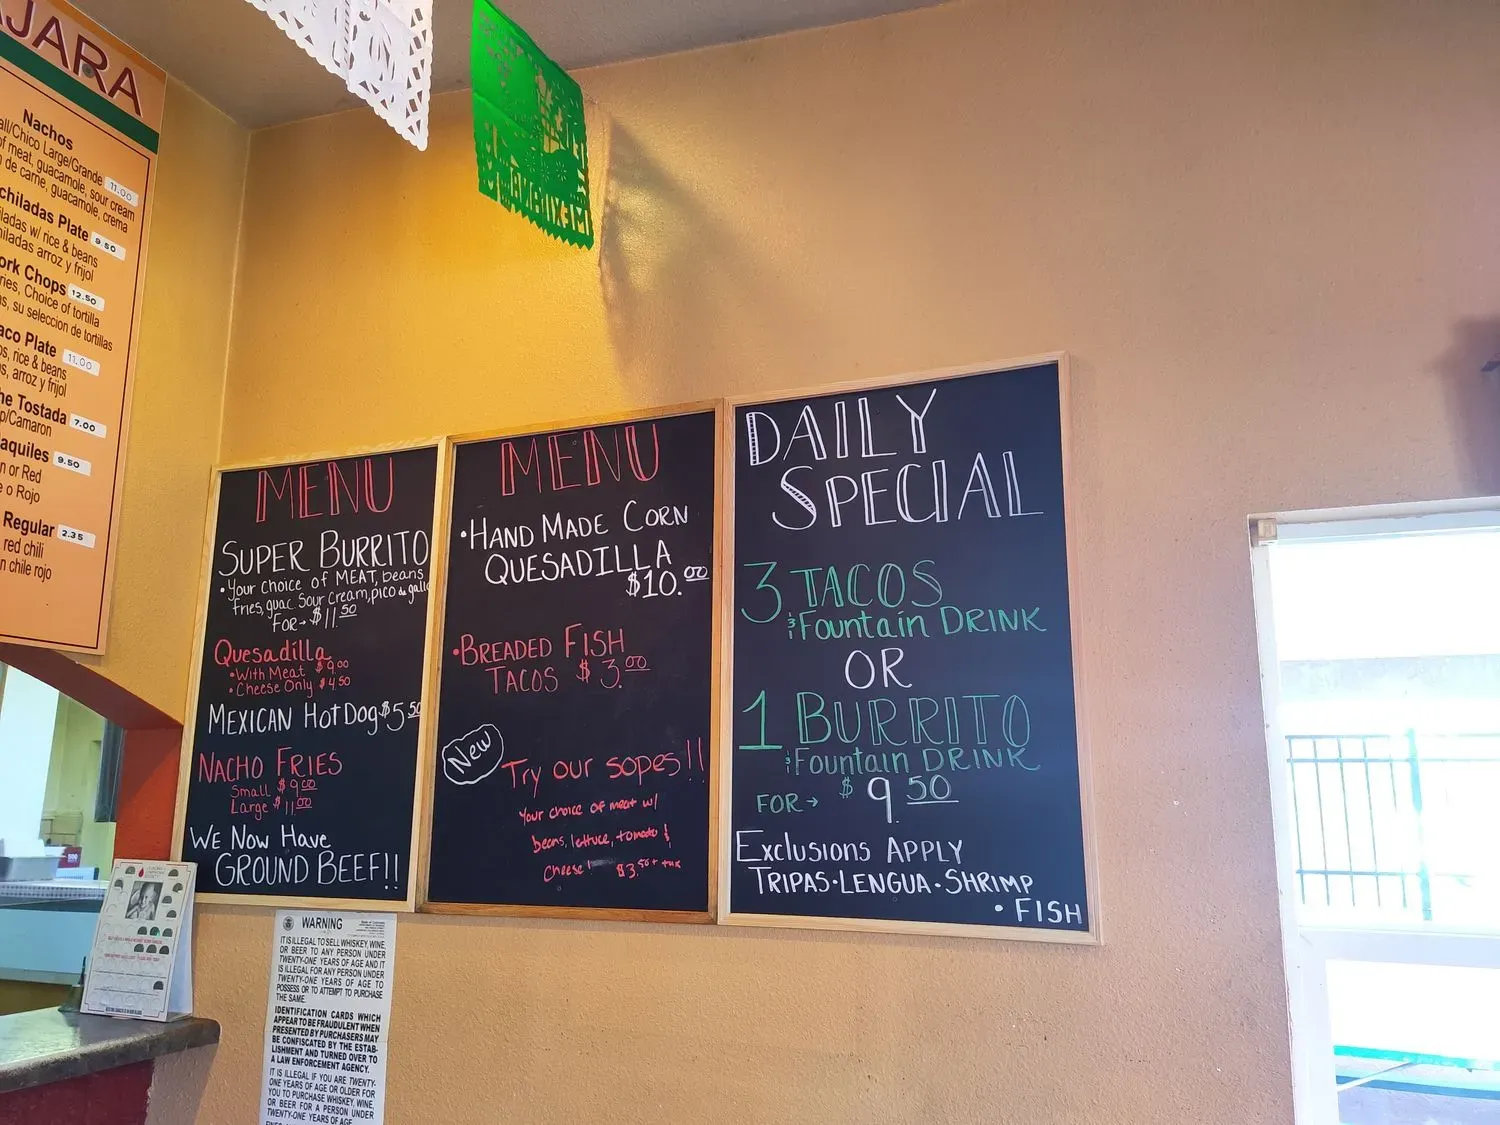 JARA
Nachos
all/Chico Large/Grande 11.00
of meat, guacamole, sour cream
de carne, guacamole, crema
chiladas Plate 9.50
iladas w/ rice & beans
hiladas arroz y frijol
ork Chops 12.50
ries, Choice of tortilla
s, su seleccion de tortillas
aco Plate 11.00
os, rice & beans
s, arroz y frijol
he Tostada 7.00
p/Camaron
aquiles 9.50
n or Red
e o Rojo
Regular 2.35
red chili
n chile rojo
MEXICANA
MENU
SUPER BURRITO
• Your choice of MEAT, beans
fries, guac, Sour Cream, pico de gallo
FOR → $11.50
Quesadilla
• With Meat $9.00
• Cheese Only $4.50
MEXICAN HOT DOG $5.50
NACHO FRIES
Small $9.00
Large $11.00
WE NOW HAVE
GROUND BEEF!!
MENU
• HAND MADE CORN
QUESADILLA
$10.00
• BREADED FISH
TACOS $3.00
New
Try our sopes!!
Your choice of meat w/
beans, lettuce, tomato &
cheese! $3.50 + tax
DAILY
SPECIAL
3 TACOS
& Fountain DRINK
OR
1 BURRITO
& Fountain DRINK
FOR → $9.50
Exclusions APPLY
TRIPAS • LENGUA • SHRIMP
• FISH
WARNING
IT IS ILLEGAL TO SELL WHISKEY, WINE,
OR BEER TO ANY PERSON UNDER
TWENTY-ONE YEARS OF AGE AND IT
IS ILLEGAL FOR ANY PERSON UNDER
TWENTY-ONE YEARS OF AGE TO
POSSESS OR TO ATTEMPT TO PURCHASE
THE SAME.
IDENTIFICATION CARDS WHICH
APPEAR TO BE FRAUDULENT WHEN
PRESENTED BY PURCHASERS MAY
BE CONFISCATED BY THE ESTAB-
LISHMENT AND TURNED OVER TO
A LAW ENFORCEMENT AGENCY.
IT IS ILLEGAL IF YOU ARE TWENTY-
ONE YEARS OF AGE OR OLDER FOR
YOU TO PURCHASE WHISKEY, WINE,
OR BEER FOR A PERSON UNDER
TWENTY-ONE YEARS OF AGE.